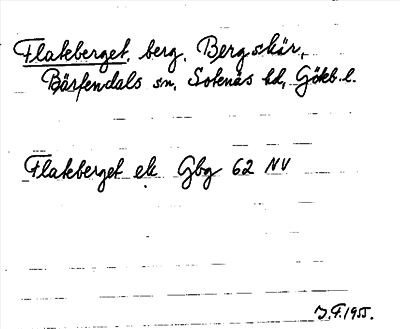 Flakeberget, berg. Bergskär,
Bärfendals sn, Sotenäs hd, Gökb. l.
Flakberget ek Gbg 62 NV
J.F. 1955.